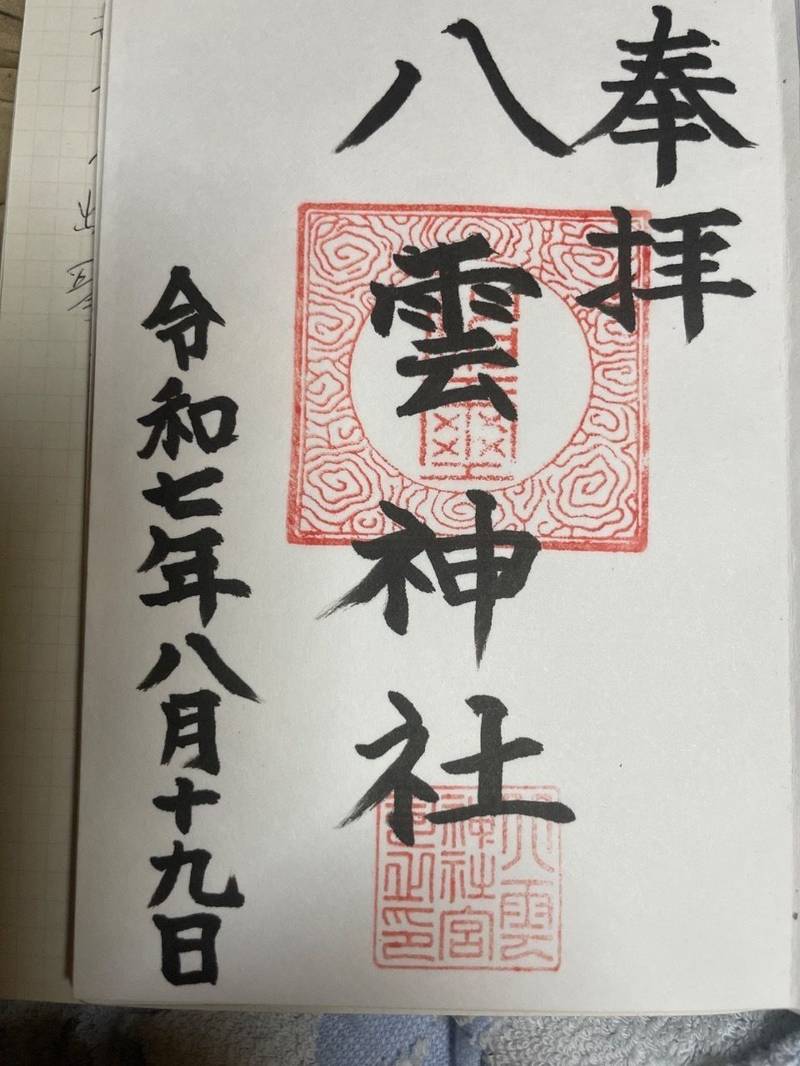 奉拝
八雲神社
令和七年八月十九日
八雲
神社宮
司之印